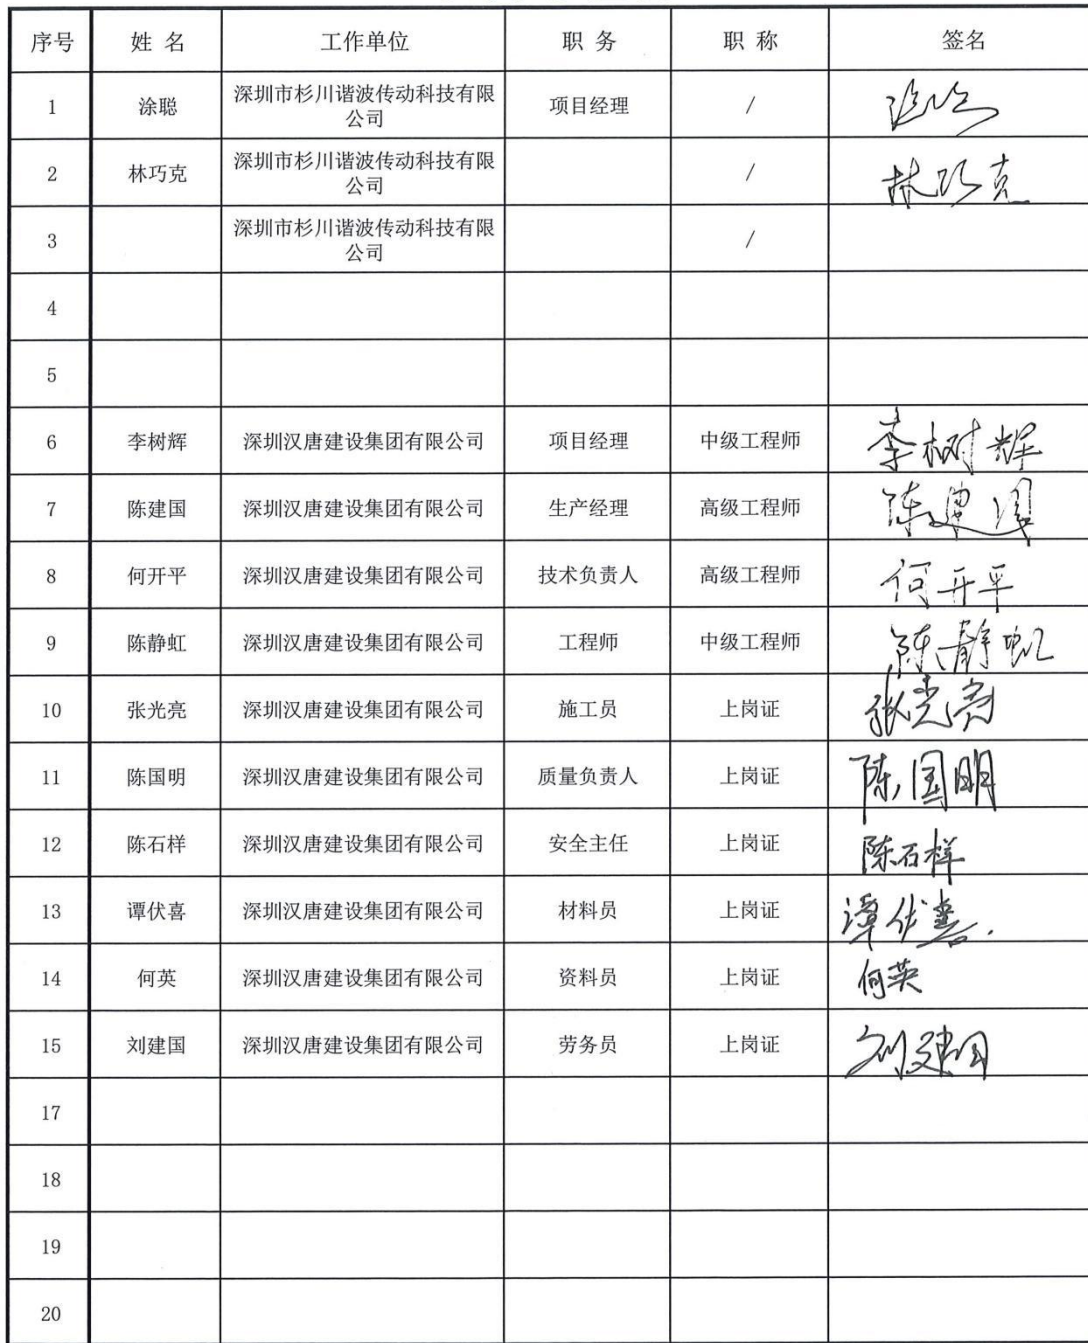 序号 姓 名 工作单位 职 务 职 称 签名
1 涂聪 深圳市杉川谐波传动科技有限 项目经理 /
公司
2 林巧克 深圳市杉川谐波传动科技有限 / 林巧克
公司
3 深圳市杉川谐波传动科技有限 /
公司
4
5
6 李树辉 深圳汉唐建设集团有限公司 项目经理 中级工程师 李树辉
7 陈建国 深圳汉唐建设集团有限公司 生产经理 高级工程师 陈建国
8 何开平 深圳汉唐建设集团有限公司 技术负责人 高级工程师 何开平
9 陈静虹 深圳汉唐建设集团有限公司 工程师 中级工程师 陈静虹
10 张光亮 深圳汉唐建设集团有限公司 施工员 上岗证 张光亮
11 陈国明 深圳汉唐建设集团有限公司 质量负责人 上岗证 陈国明
12 陈石样 深圳汉唐建设集团有限公司 安全主任 上岗证 陈石样
13 谭伏喜 深圳汉唐建设集团有限公司 材料员 上岗证 谭伏喜.
14 何英 深圳汉唐建设集团有限公司 资料员 上岗证 何英
15 刘建国 深圳汉唐建设集团有限公司 劳务员 上岗证 刘建国
17
18
19
20